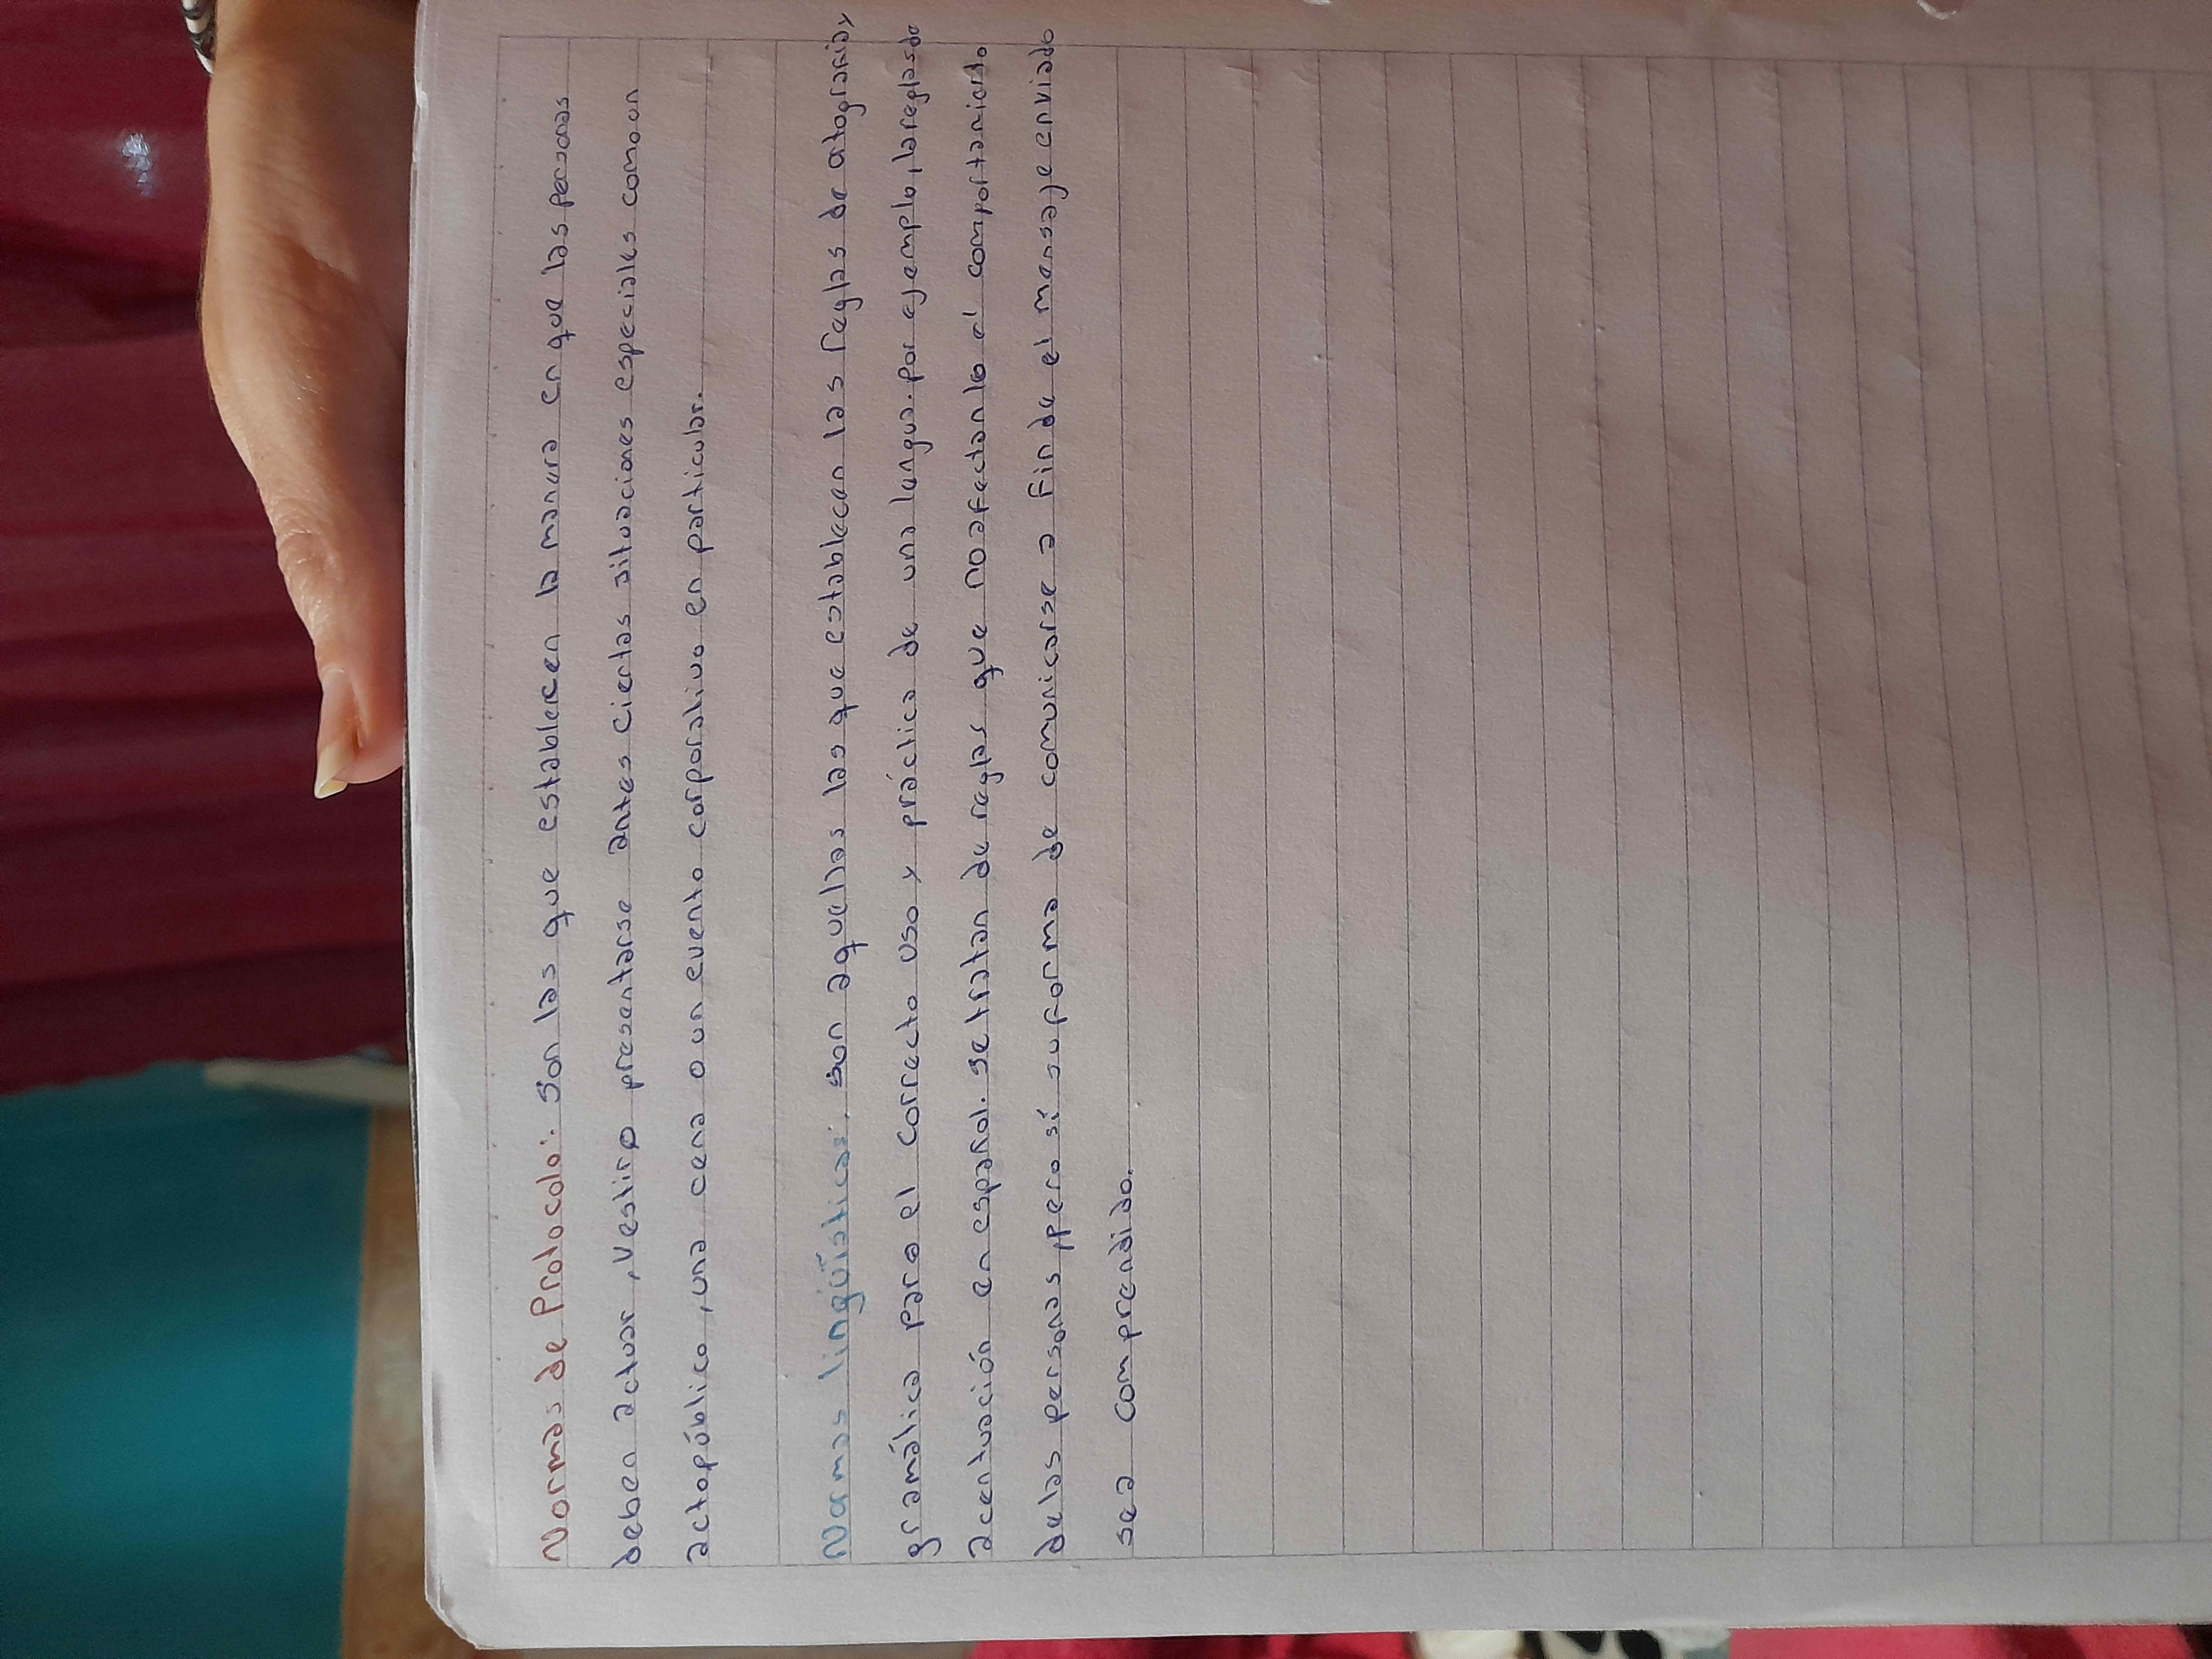 Normas de Protocolo: Son las que establecen la manera en que las personas
deben actuar, vestir o presentarse antes ciertas situaciones especiales como un
acto público, una cena o un evento corporativo en particular.
Normas lingüísticas: son aquellas las que establecen las reglas de otografía y
gramática para el correcto uso y práctica de una lengua. por ejemplo, la reglas de
acentuación en español. se tratan de reglas que no afectan lo el comportamiento
de las personas, pero sí su forma de comunicarse a fin de el mensaje enviado
sea comprendido.